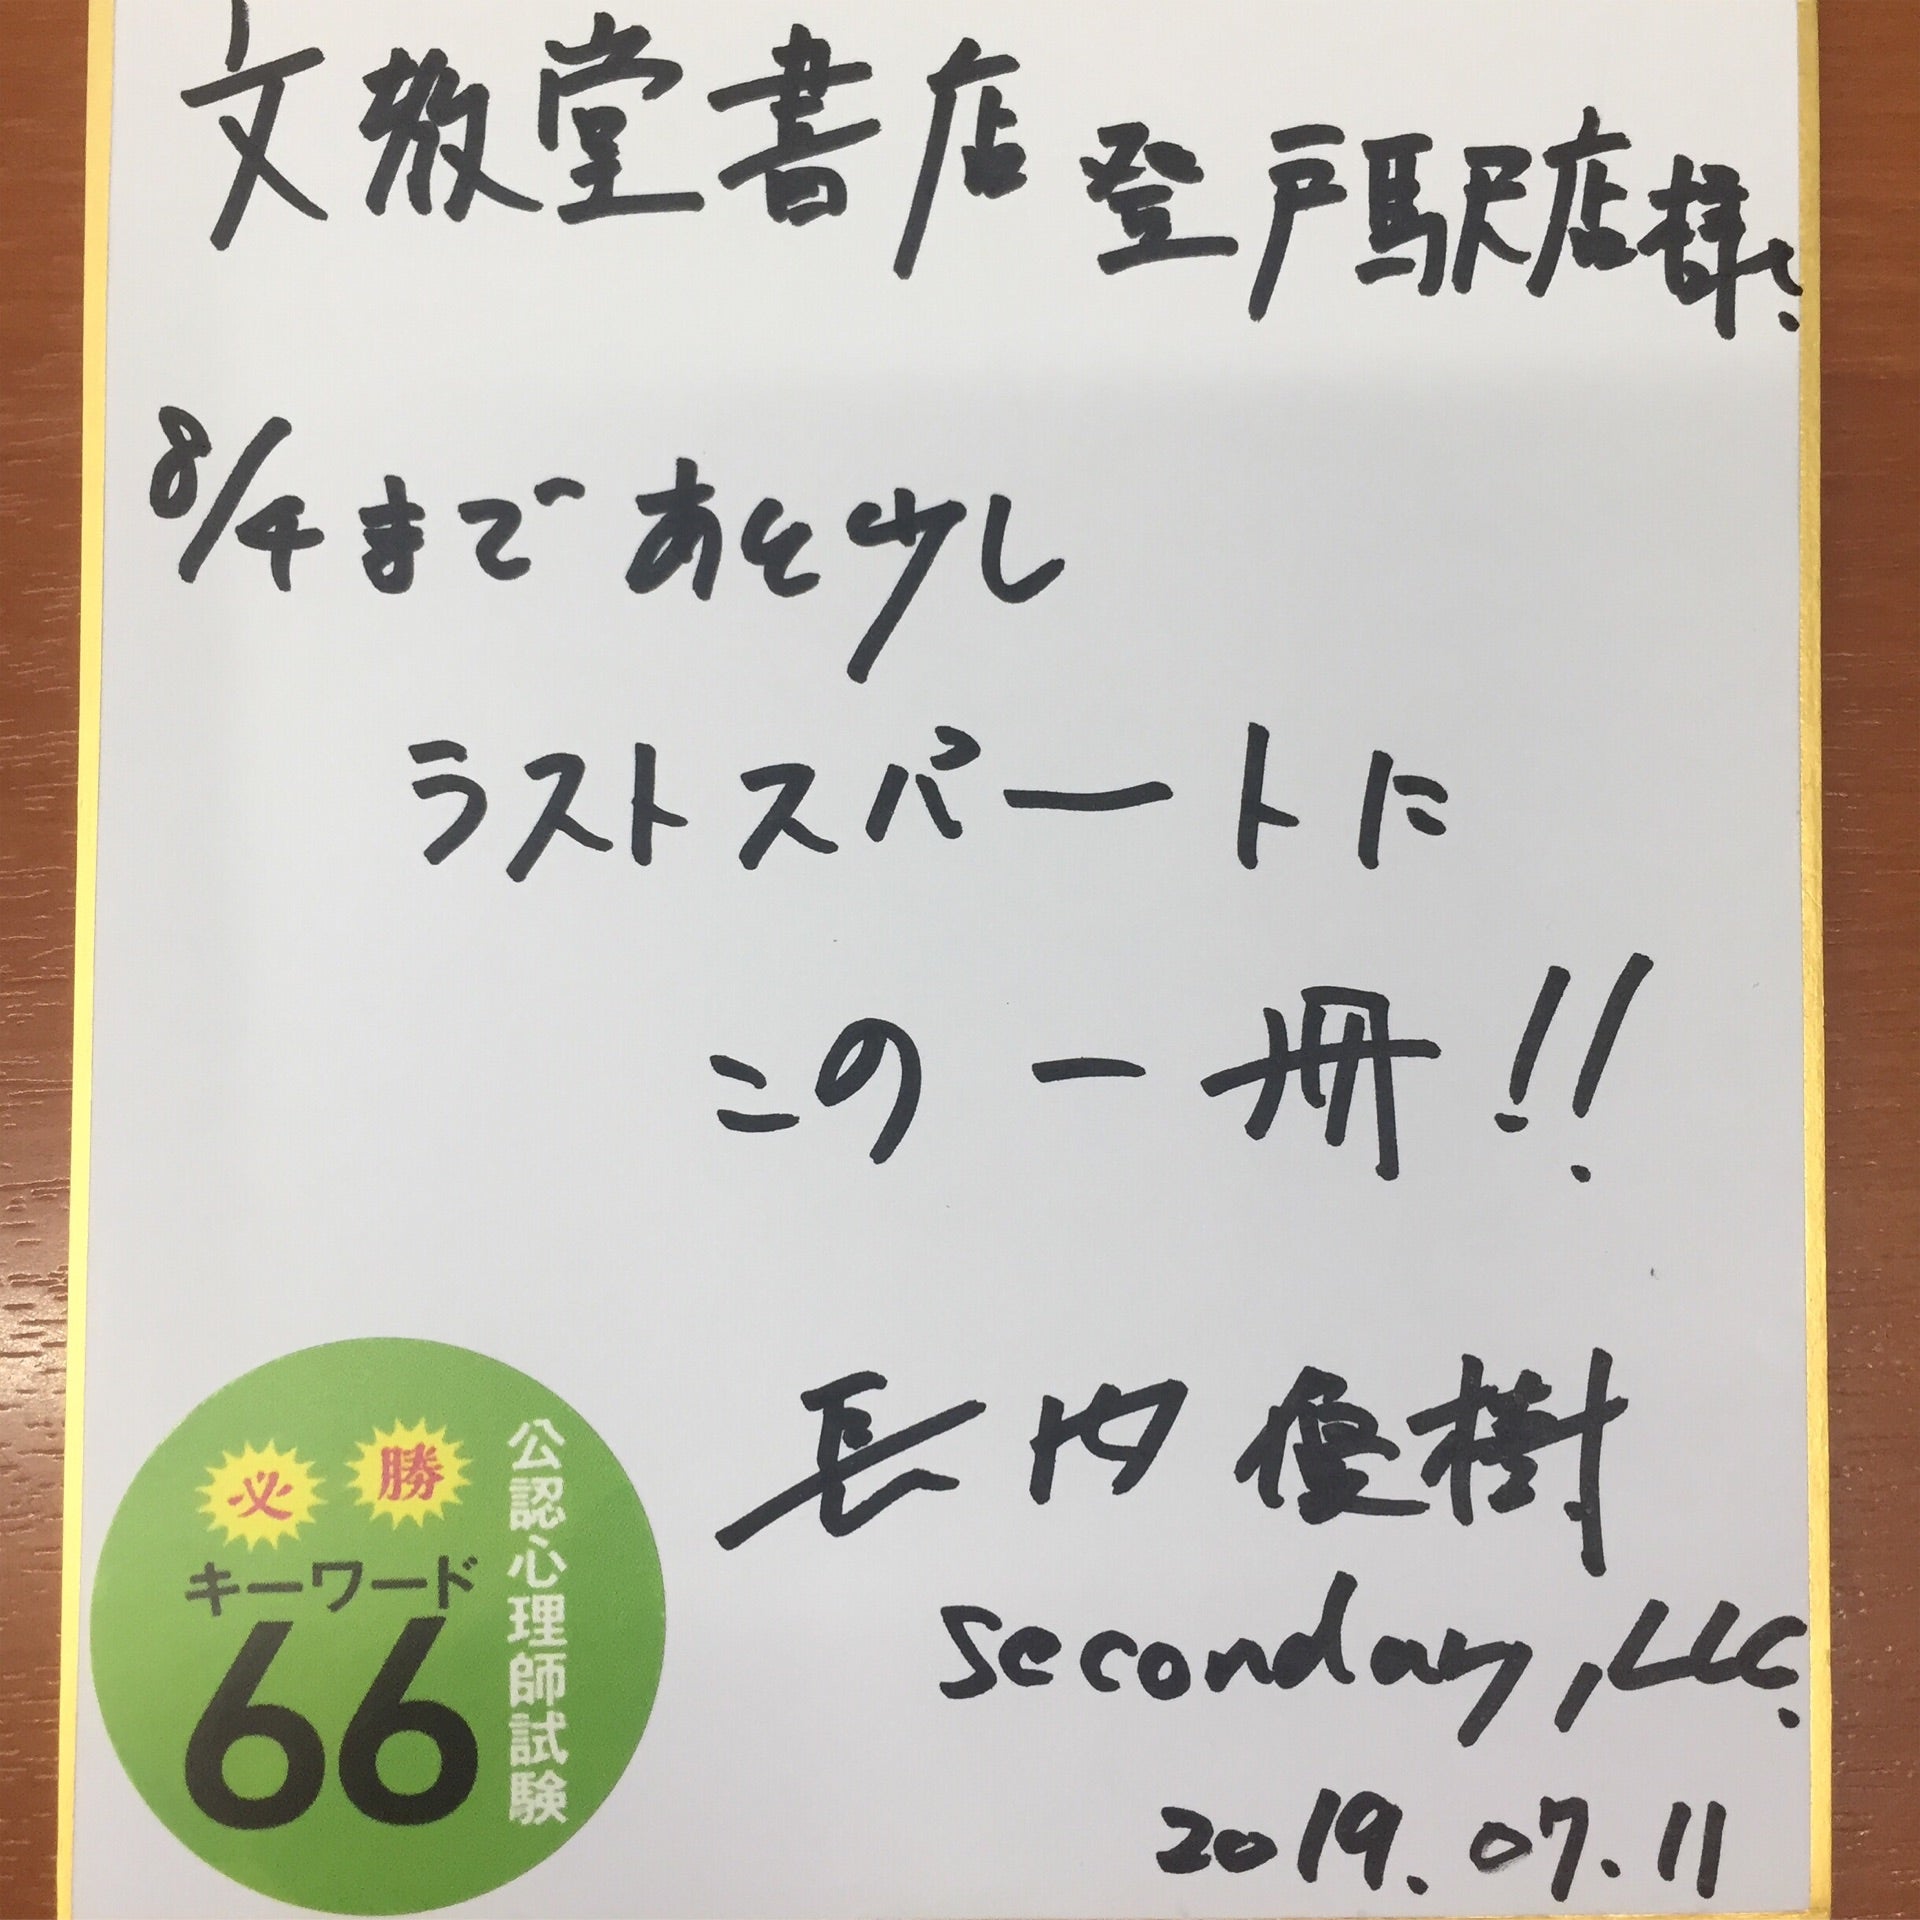 文教堂書店 登戸駅店様.
8/4まで あと少し
ラストスパートに
この一冊!!
長内優樹
secondary, LLC.
2019.07.11
必勝
キーワード
66
公認心理師試験